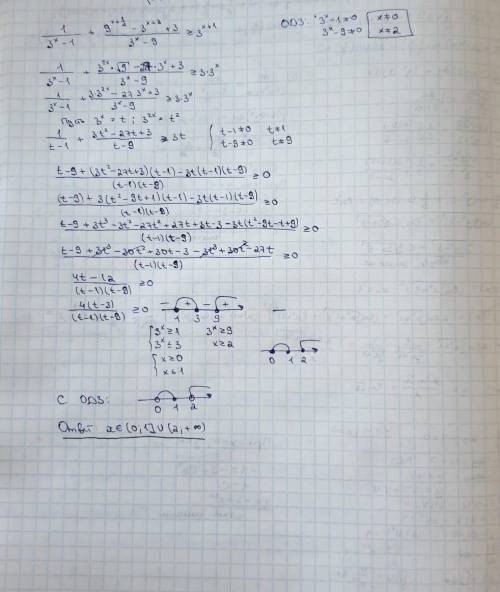 1/(3^x-1) + (9^(x+1/2) - 3^(x+3) + 3)/(3^x-9) ≥ 3^(x+1)
ОДЗ: 3^x-1≠0 x≠0
3^x-9≠0 x≠2
1/(3^x-1) + (3^(2x)·√9 - 27·3^x+3)/(3^x-9) ≥ 3·3^x
1/(3^x-1) + (3·3^(2x) - 27·3^x+3)/(3^x-9) ≥ 3·3^x
Пусть 3^x = t ; 3^(2x) = t²
1/(t-1) + (3t²-27t+3)/(t-9) ≥ 3t { t-1≠0 t≠1
t-9≠0 t≠9
(t-9+(3t²-27t+3)(t-1)-3t(t-1)(t-9))/((t-1)(t-9)) ≥0
((t-9)+3(t²-9t+1)(t-1)-3t(t-1)(t-9))/((t-1)(t-9)) ≥0
(t-9+3t³-3t²-27t²+27t+3t-3-3t(t²-9t-t+9))/((t-1)(t-9)) ≥0
(t-9+3t³-30t²+30t-3-3t³+30t²-27t)/((t-1)(t-9)) ≥0
(4t-12)/((t-1)(t-9)) ≥0
4(t-3)/((t-1)(t-9)) ≥0 - + - +
1 3 9
{ 3^x≥1 3^x≥9
3^x≤3 x≥2
{ x≥0
x≤1
0 1 2
С ОДЗ:
0 1 2
Ответ x∈(0;1]∪(2;+∞)